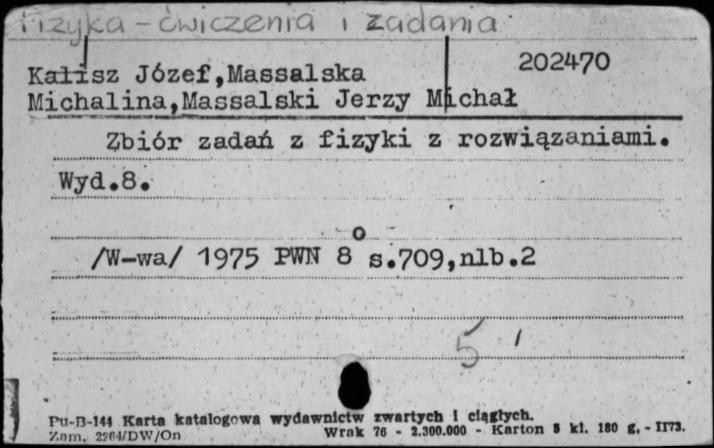 Fizyka - ćwiczenia i zadania
202470
Kalisz Józef,Massalska
Michalina,Massalski Jerzy Michał
Zbiór zadań z fizyki z rozwiązaniami.
Wyd.8.
/W-wa/ 1975 PWN 8° s.709,nlb.2
5
Pu-B-144 Karta katalogowa wydawnictw zwartych i ciągłych.
Zam. 2264/DW/On Wrak 76 - 2.300.000 - Karton 8 kl. 180 g. - II73.